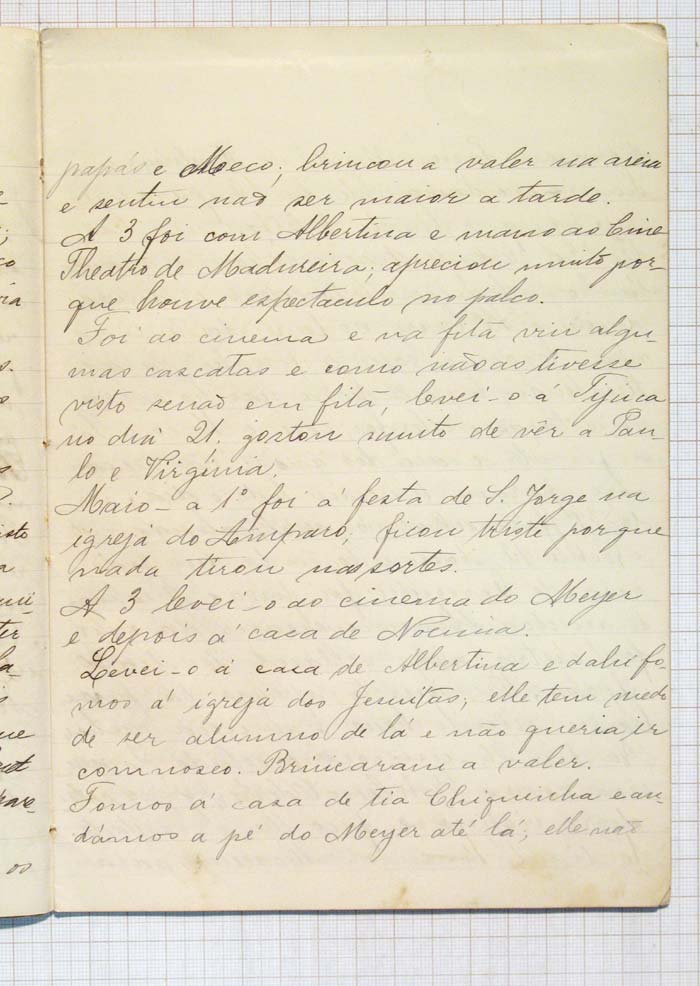 papás e Moeco; brincou a valer na areia
e sentiu não ser maior a tarde.
A 3 foi com Albertina e mano ao Cine
Theatro de Madureira; apreciou muito por-
que houve espectaculo no palco.
Foi ao cinema e na fita viu algu-
mas cascatas e como não as tivesse
visto senão em fita, levei-o á Tijuca
no dia 21. gostou muito de vêr a Pau-
lo e Virgínia.
Maio - a 1º foi á festa de S. Jorge na
igreja do Amparo; ficou triste porque
nada tirou nas sortes.
A 3 levei-o ao cinema do Meyer
e depois á casa de Noemia.
Levei-o á casa de Albertina e dahi fo-
mos á igreja dos Jesuitas; elle tem medo
de ser alumno de lá e não queria ir
comnosco. Brincaram a valer.
Fomos á casa de tia Chiquinha e an-
dámos a pé do Meyer até lá; elle não